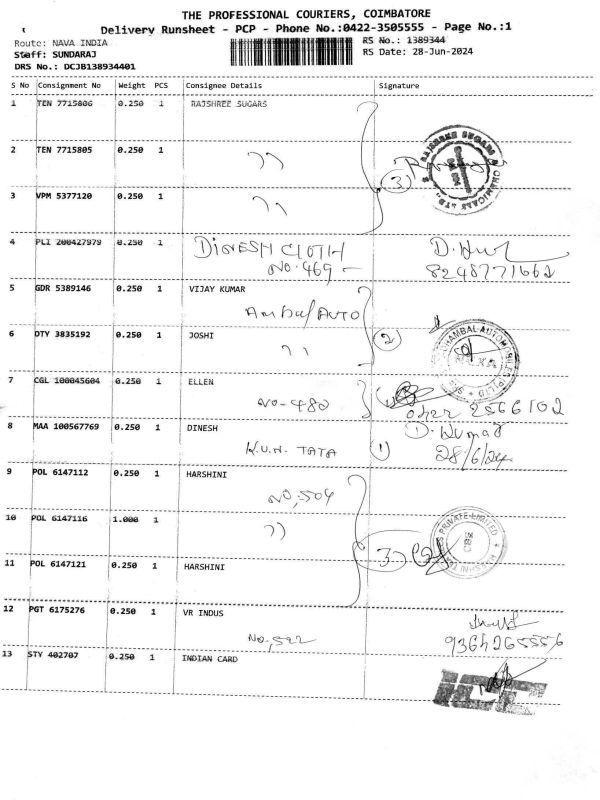 THE PROFESSIONAL COURIERS, COIMBATORE
Delivery Runsheet - PCP - Phone No.:0422-3505555 - Page No.:1
Route: NAVA INDIA
RS No.: 1389344
Staff: SUNDARAJ
RS Date: 28-Jun-2024
DRS No.: DCJB138934401
S No Consignment No Weight PCS Consignee Details Signature
1 TEN 7715806 0.250 1 RAJSHREE SUGARS
2 TEN 7715805 0.250 1 ,,
3 VPM 5377120 0.250 1 ,,
3
4 PLI 200427979 0.250 1 DINESH CLOTH
NO.469 -
8248771662
5 GDR 5389146 0.250 1 VIJAY KUMAR
Ambal AUTO
6 DTY 3835192 0.250 1 JOSHI
,,
2
7 CGL 100045604 0.250 1 ELLEN
NO-480
2566102
8 MAA 100567769 0.250 1 DINESH
D. Kumar
K.U.N. TATA 1 28/6/24
9 POL 6147112 0.250 1 HARSHINI
NO,504
10 POL 6147116 1.000 1
,,
3
11 POL 6147121 0.250 1 HARSHINI
12 PGT 6175276 0.250 1 VR INDUS
NO,522
9364265556
13 STY 402707 0.250 1 INDIAN CARD